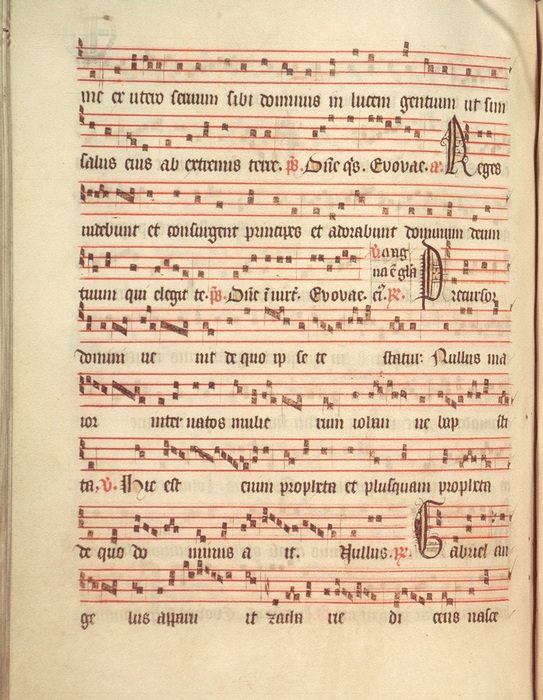 me ex utero seruum sibi dominus in lucem gentium ut sim
salus eius ab extremis terre. ps. Dñe qs. Evovae. a. Reges
uidebunt et consurgent principes et adorabunt dominum deum
tuum qui elegit te. ps. Dñe Evovae. R. Precursor
domini ue nit de quo ip se te statur Nullus ma
ior inter natos mulie rum iohan ne bap tis
ta. V. Hic est enim propheta et plusquam propheta
de quo do minus a it. Nullus. R. Gabriel an
ge lus appau it zacha rie di cens nasce